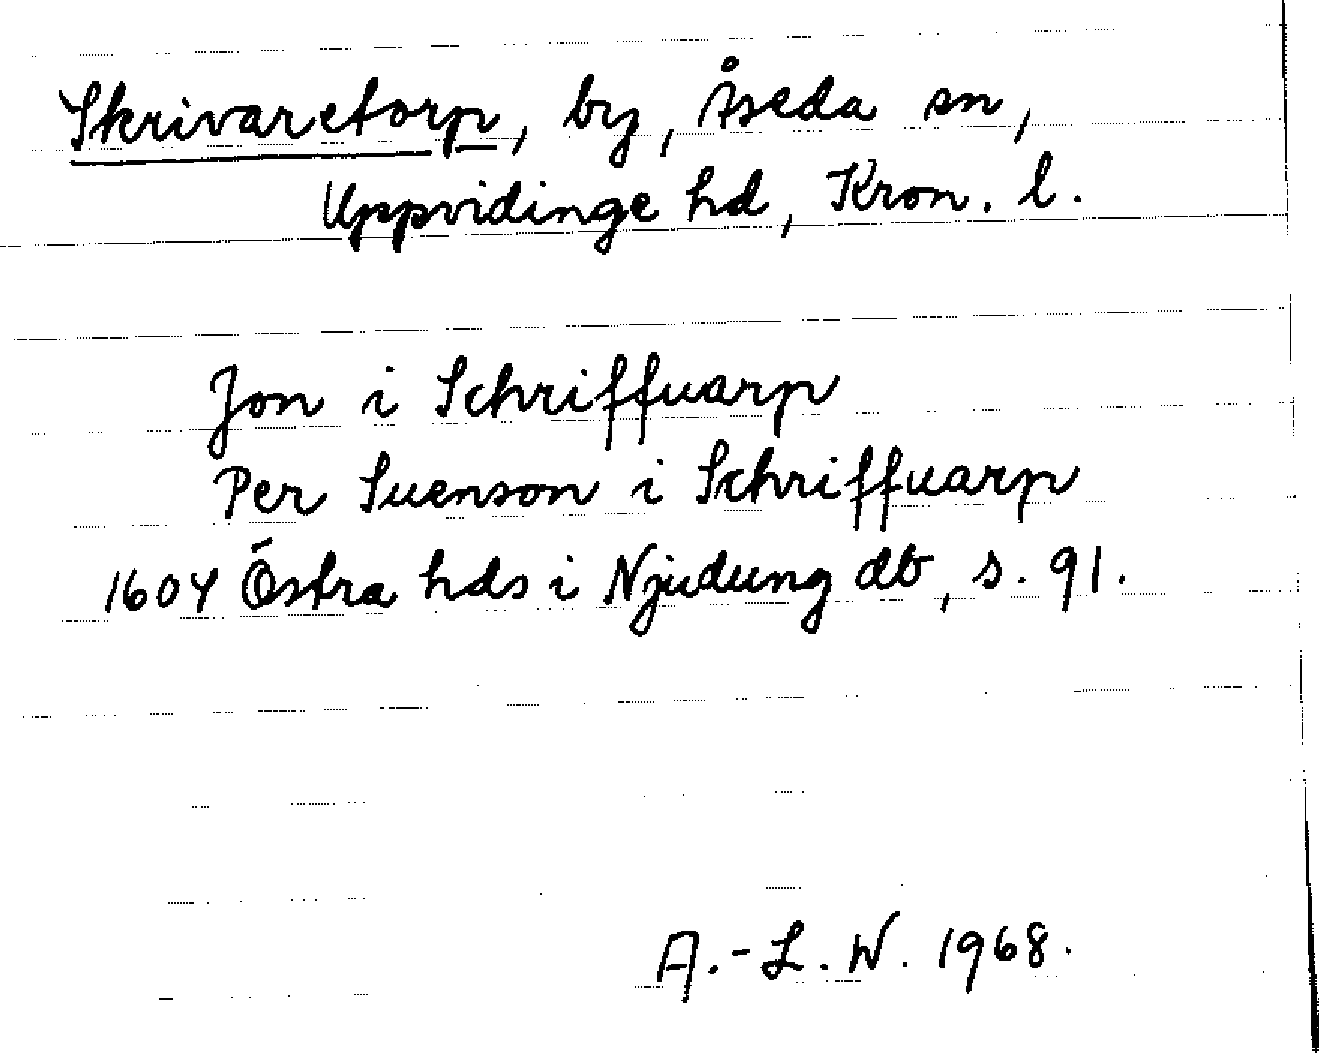 Skrivaretorp, by, Åseda sn,
Uppvidinge hd, Kron. l.
Jon i Schriffuarp
Per Suenson i Schriffuarp
1604 Östra hds i Njudung db, s. 91.
A.-L. W. 1968.